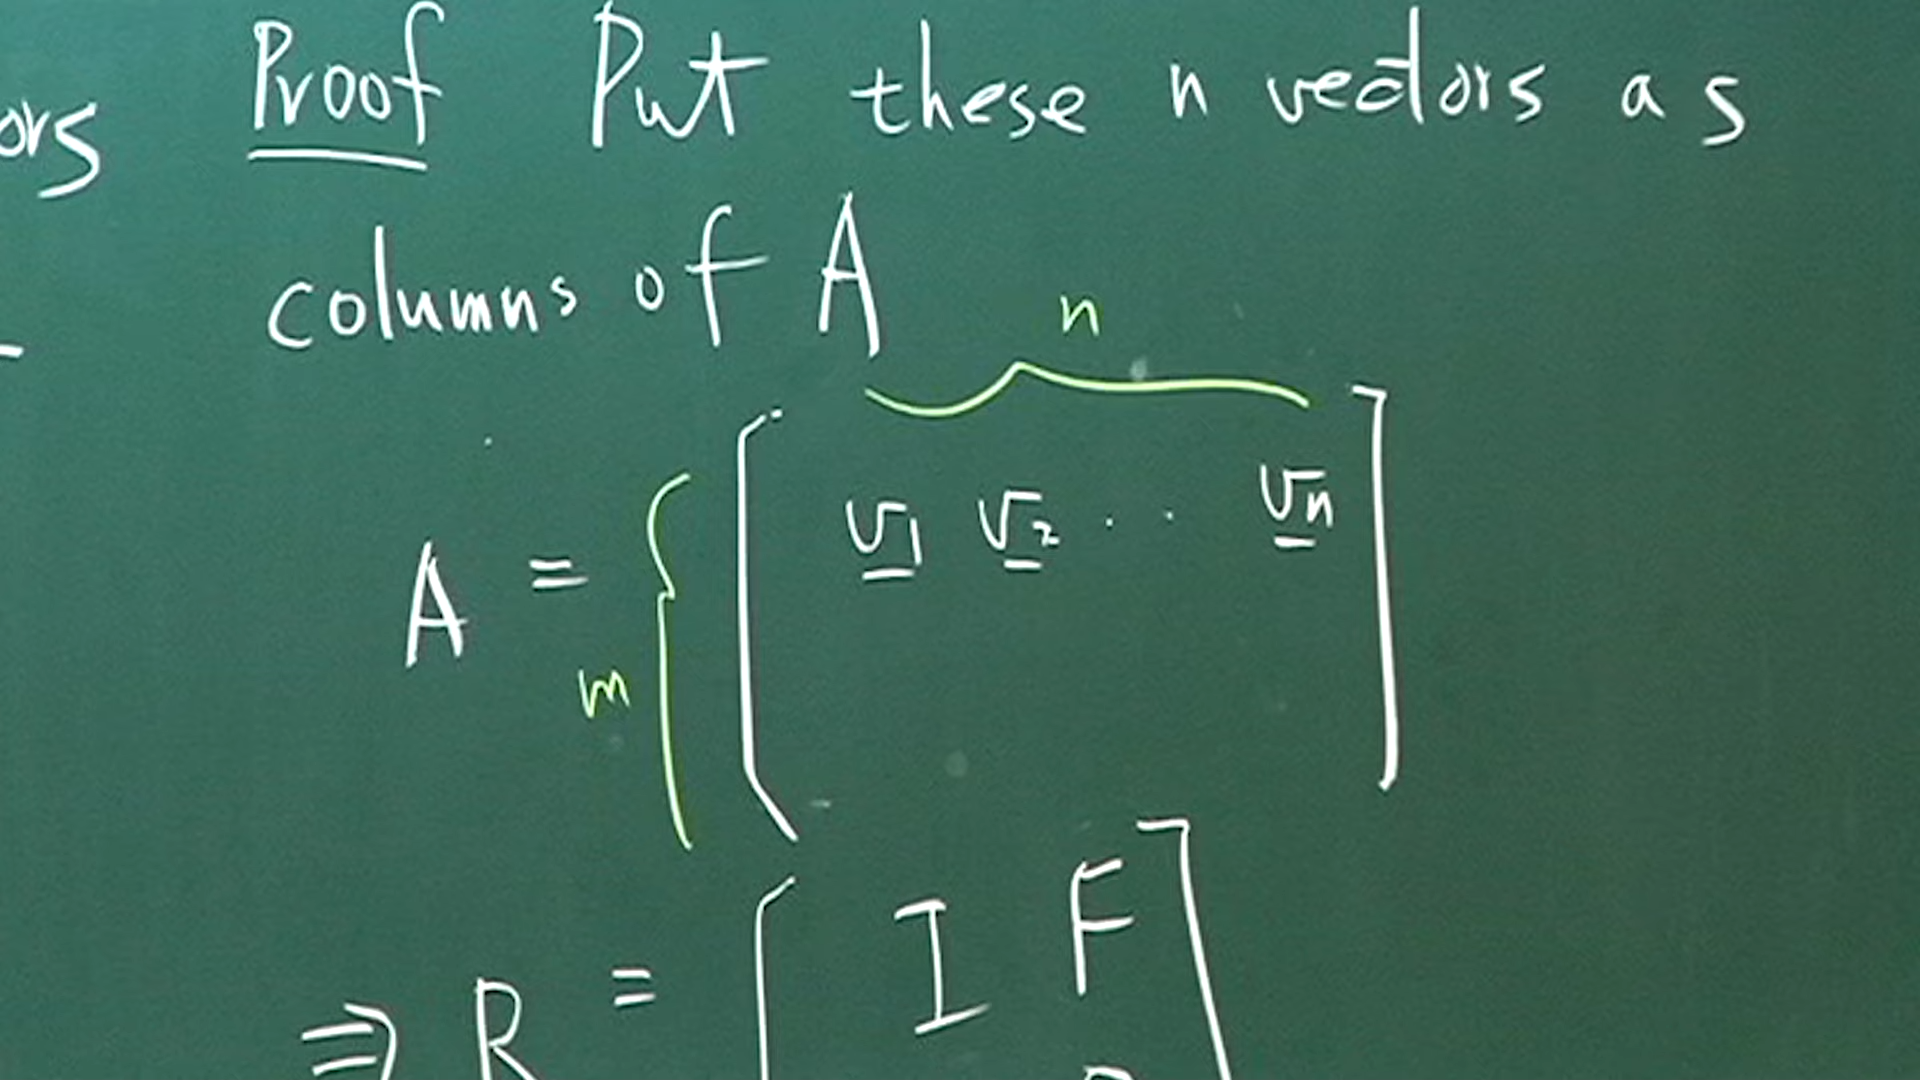 ors
Proof Put these n vectors as
columns of A
n
A = [ v1 v2 . . vn ]
m
⇒ R = [ I F ]